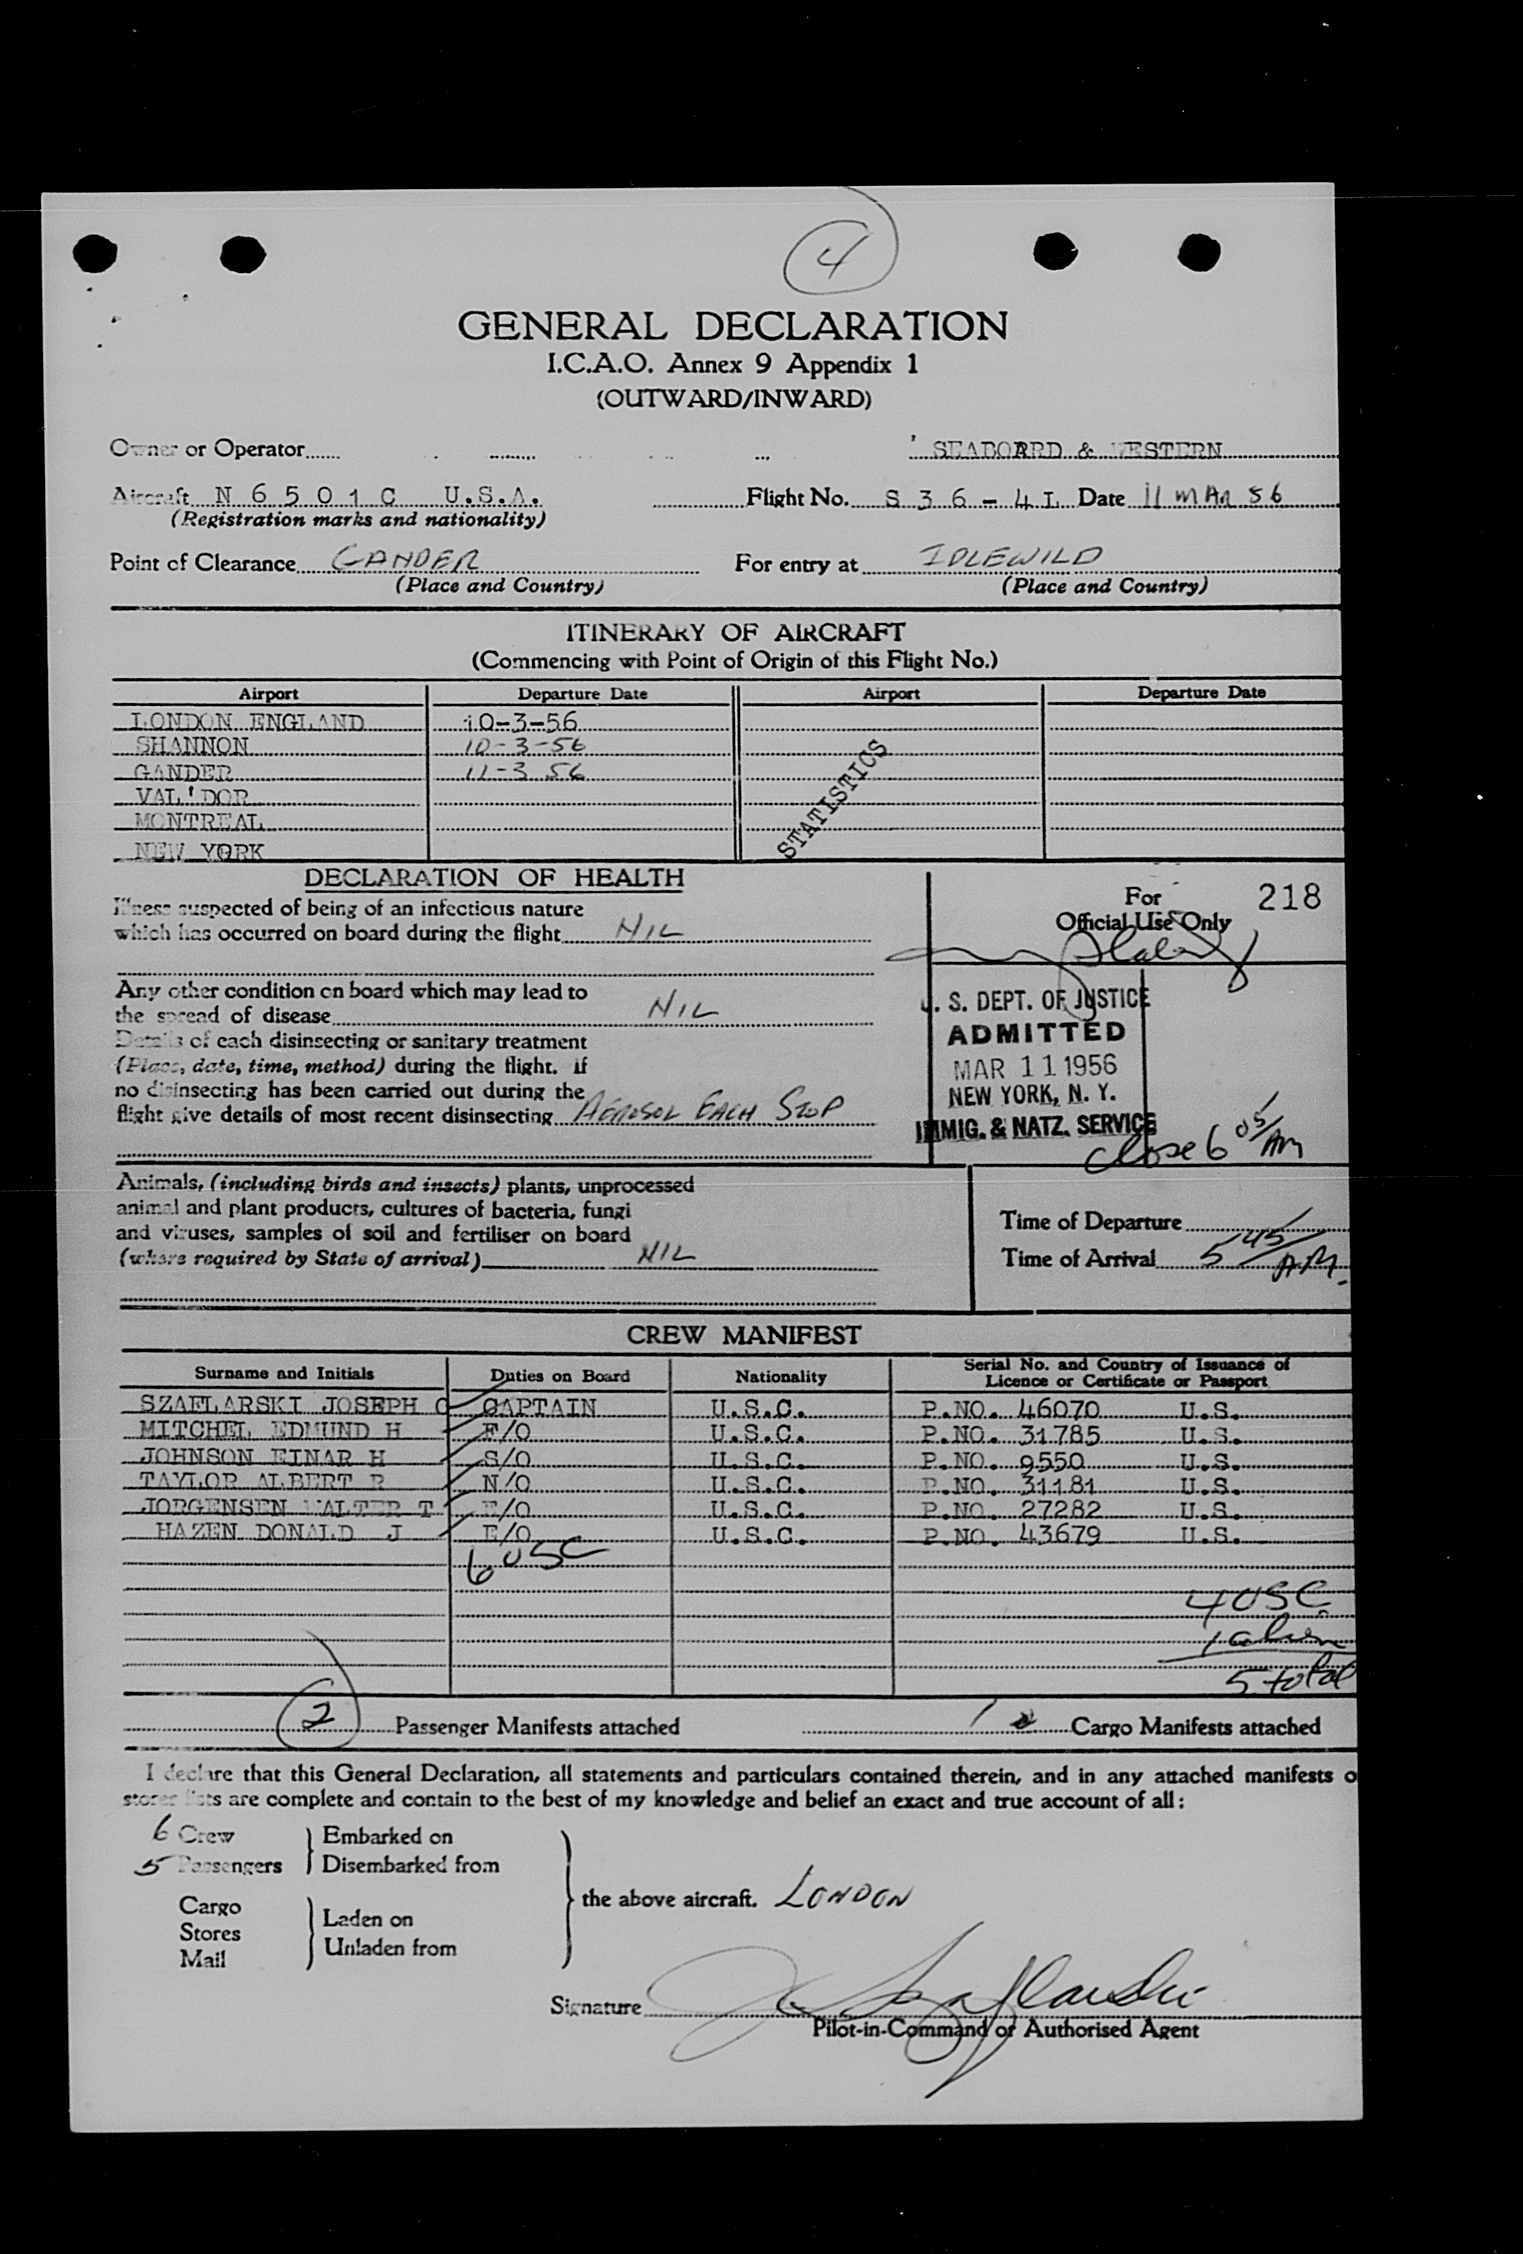 4
GENERAL DECLARATION
I.C.A.O. Annex 9 Appendix 1
(OUTWARD/INWARD)
Owner or Operator SEABOARD & WESTERN
Aircraft N 6 5 0 1 C U.S.A. Flight No. S 3 6 - 4 I Date 11 MAR 56
(Registration marks and nationality)
Point of Clearance GANDER For entry at IDLEWILD
(Place and Country) (Place and Country)
ITINERARY OF AIRCRAFT
(Commencing with Point of Origin of this Flight No.)
Airport Departure Date Airport Departure Date
LONDON ENGLAND 10-3-56
SHANNON 10-3-56
GANDER 11-3 56
VAL'DOR
MONTREAL
NEW YORK
STATISTICS
DECLARATION OF HEALTH
Illness suspected of being of an infectious nature
which has occurred on board during the flight NIL
Any other condition on board which may lead to
the spread of disease NIL
Details of each disinsecting or sanitary treatment
(Place, date, time, method) during the flight. If
no disinsecting has been carried out during the
flight give details of most recent disinsecting AEROSOL EACH STOP
For 218
Official Use Only
U. S. DEPT. OF JUSTICE
ADMITTED
MAR 11 1956
NEW YORK, N. Y.
IMMIG. & NATZ. SERVICE
Close 6 05/AM
Animals, (including birds and insects) plants, unprocessed
animal and plant products, cultures of bacteria, fungi
and viruses, samples of soil and fertiliser on board
(where required by State of arrival) NIL
Time of Departure
Time of Arrival 5 45/AM.
CREW MANIFEST
Surname and Initials Duties on Board Nationality Serial No. and Country of Issuance of Licence or Certificate or Passport
SZAFLARSKI JOSEPH C CAPTAIN U.S.C. P.NO. 46070 U.S.
MITCHEL EDMUND H F/O U.S.C. P.NO. 31785 U.S.
JOHNSON EINAR H S/O U.S.C. P.NO. 9550 U.S.
TAYLOR ALBERT R N/O U.S.C. P.NO. 31181 U.S.
JORGENSEN WALTER T F/O U.S.C. P.NO. 27282 U.S.
HAZEN DONALD J E/O U.S.C. P.NO. 43679 U.S.
6 USC
4 USC
1 alien
5 total
2 Passenger Manifests attached 1 Cargo Manifests attached
I declare that this General Declaration, all statements and particulars contained therein, and in any attached manifests o
stores lists are complete and contain to the best of my knowledge and belief an exact and true account of all:
6 Crew Embarked on
5 Passengers Disembarked from
the above aircraft. LONDON
Cargo
Stores
Mail
Laden on
Unladen from
Signature J Szaflarski
Pilot-in-Command or Authorised Agent